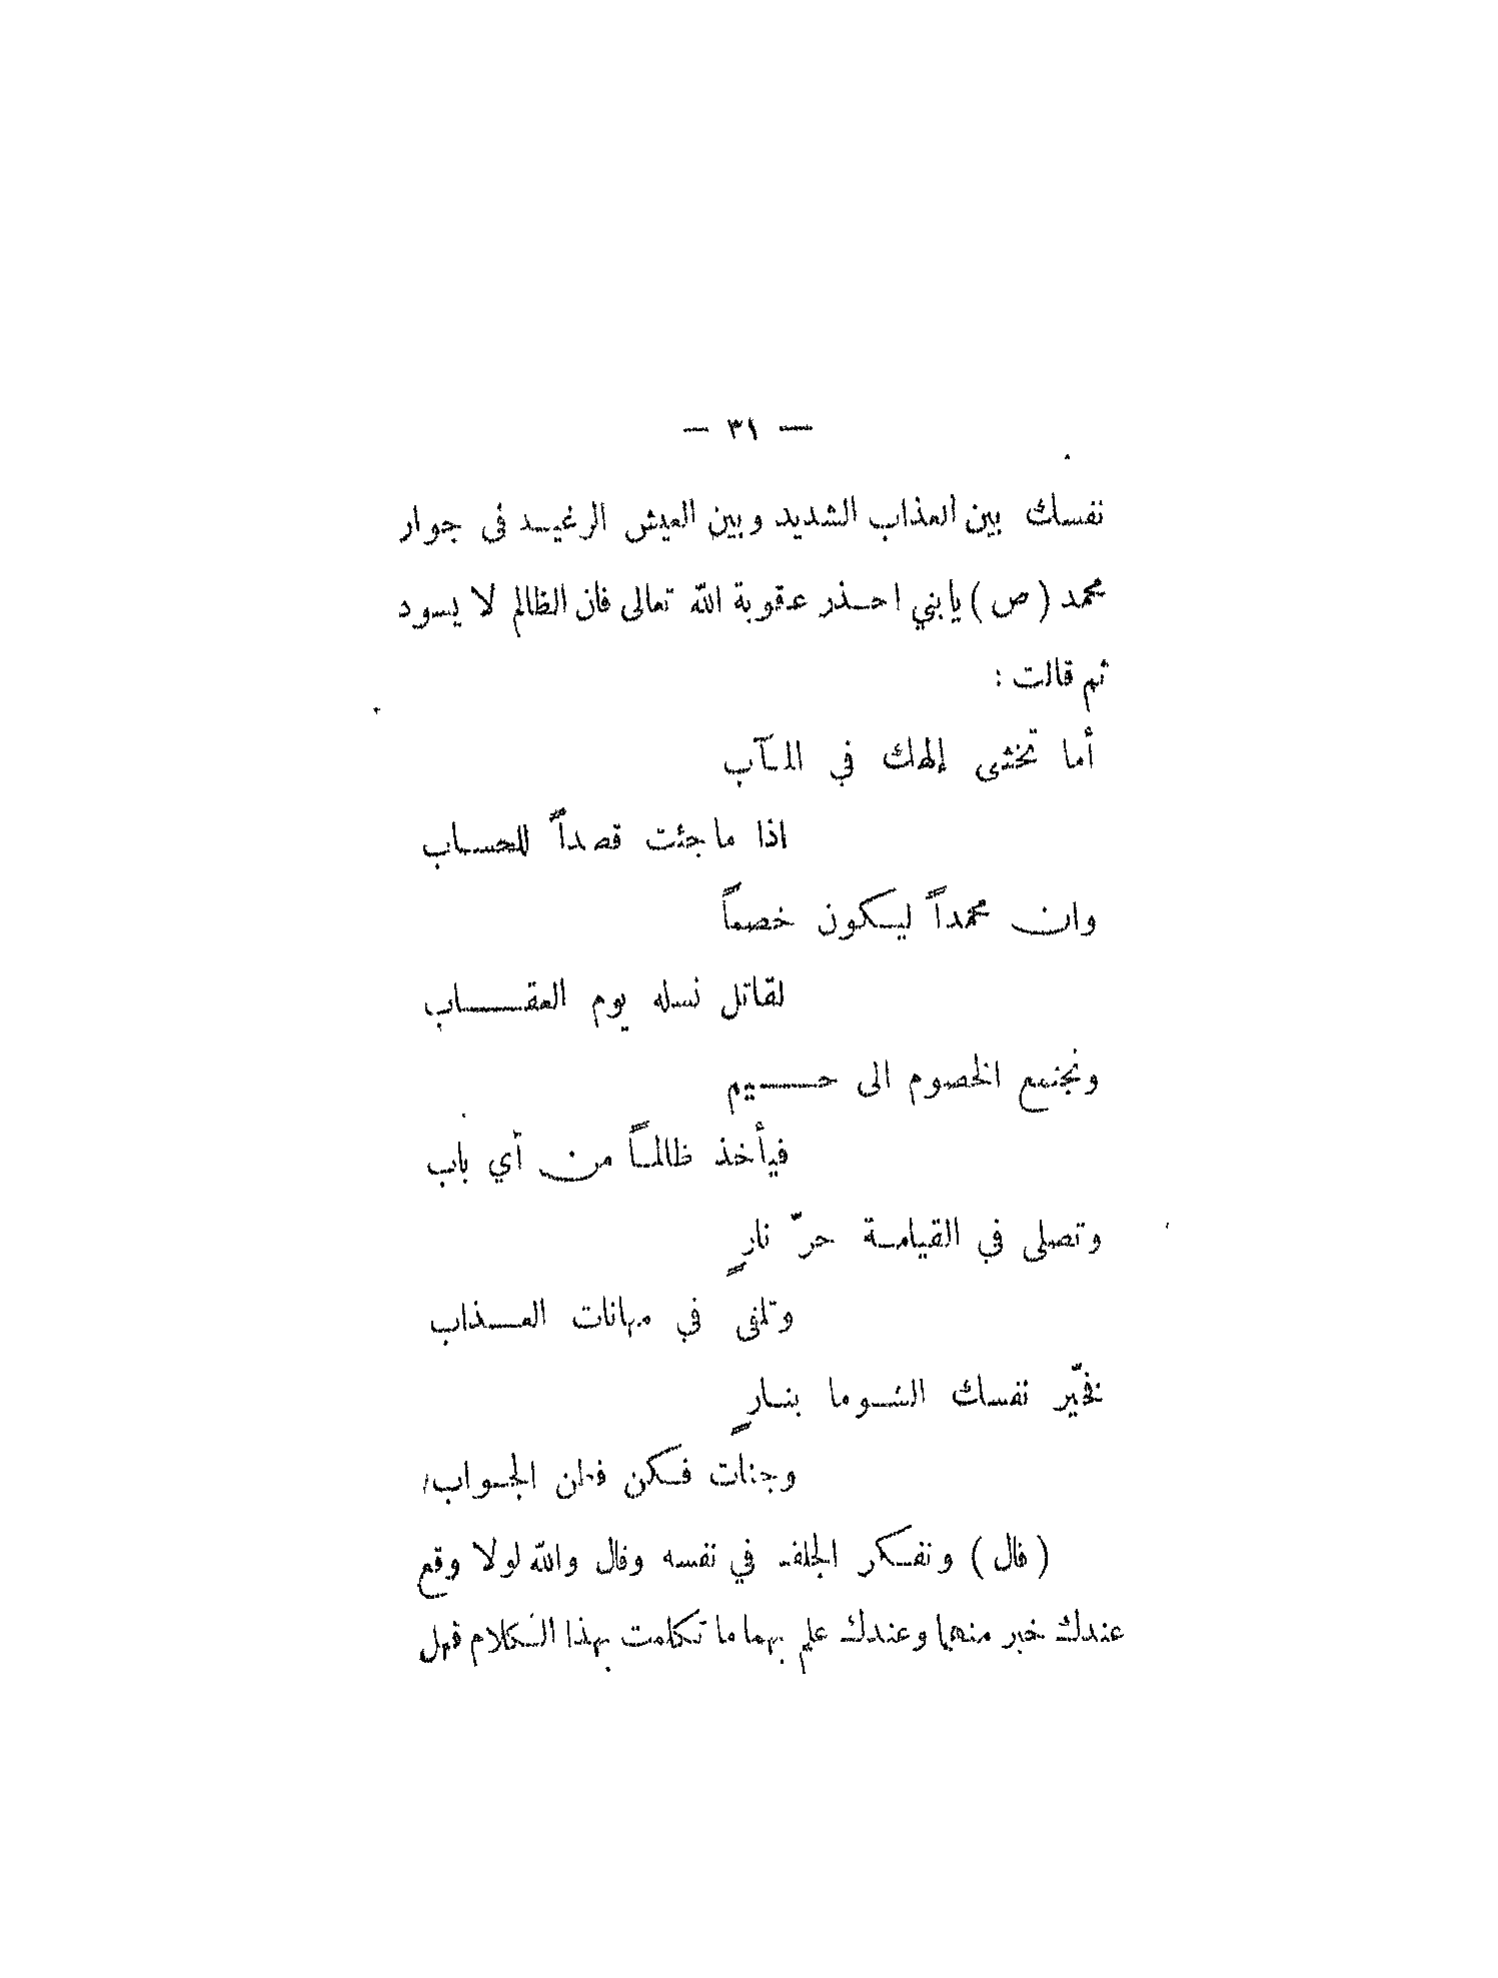 — ٣١ —
نفسك بين العذاب الشديد وبين العيش الرغيد فى جوار
محمد (ص) يا بني احذر عقوبة الله تعالى فان الظالم لا يسود
ثم قالت :
أما تخشى إلهك في المآب
اذا ما جئت قصداً للحساب
وان محمداً ليكون خصماً
لقاتل نسله يوم العقاب
وتجتمع الخصوم الى حميم
فيأخذ ظالماً من أي باب
وتصلى في القيامة حرّ نارٍ
وتلقى في مهانات العذاب
فخيّر نفسك الشوما بنارٍ
وجنات فكن فطن الجواب
(قال) وتفكر الجلف في نفسه وقال والله لولا وقع
عندك خبر منهما وعندك علم بهما ما تكلمت بهذا الكلام فهل